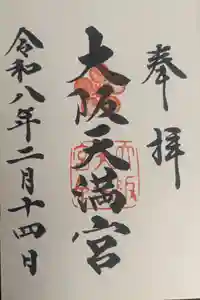 奉拝
大阪天満宮
令和八年二月十四日